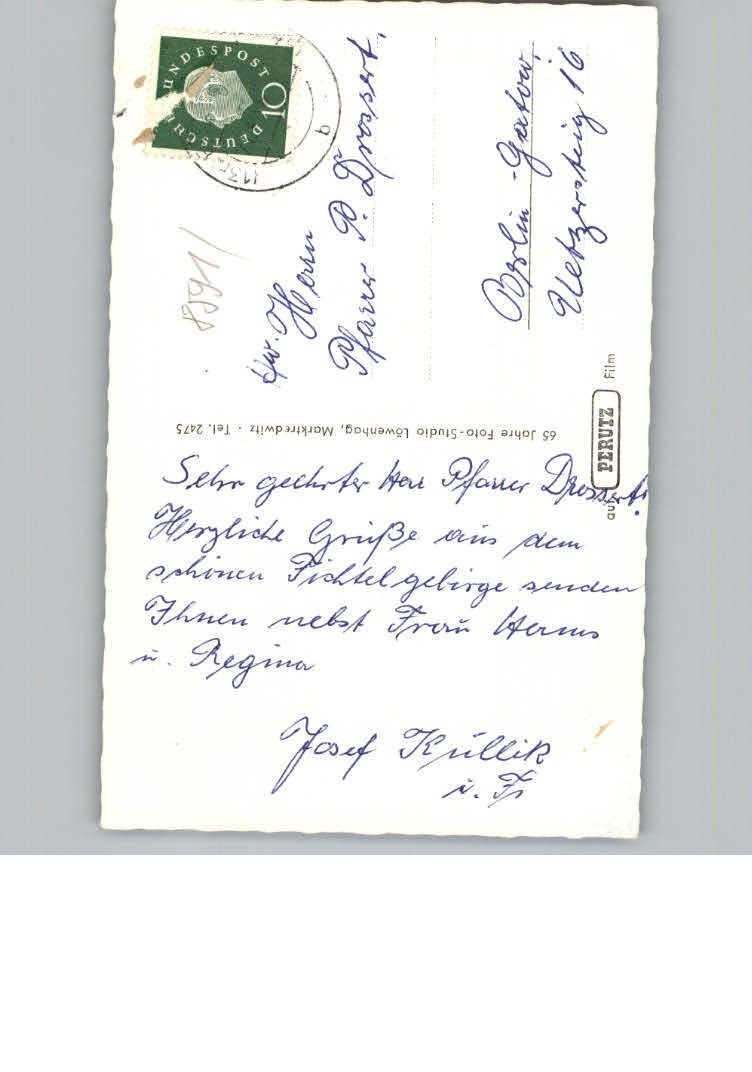 DEUTSCHE BUNDESPOST
10
b
8591/
Hw. Herrn
Pfarrer P. Drossert,
Berlin-Gatow,
Uetzersteig 16
65 Jahre Foto-Studio Löwenhag, Marktredwitz · Tel. 2475
auf PERUTZ Film
Sehr geehrter Herr Pfarrer Drossert!
Herzliche Grüße aus dem
schönen Fichtelgebirge senden
Ihnen nebst Frau Hanns
u. Regina
Josef Küllik
u. Fr